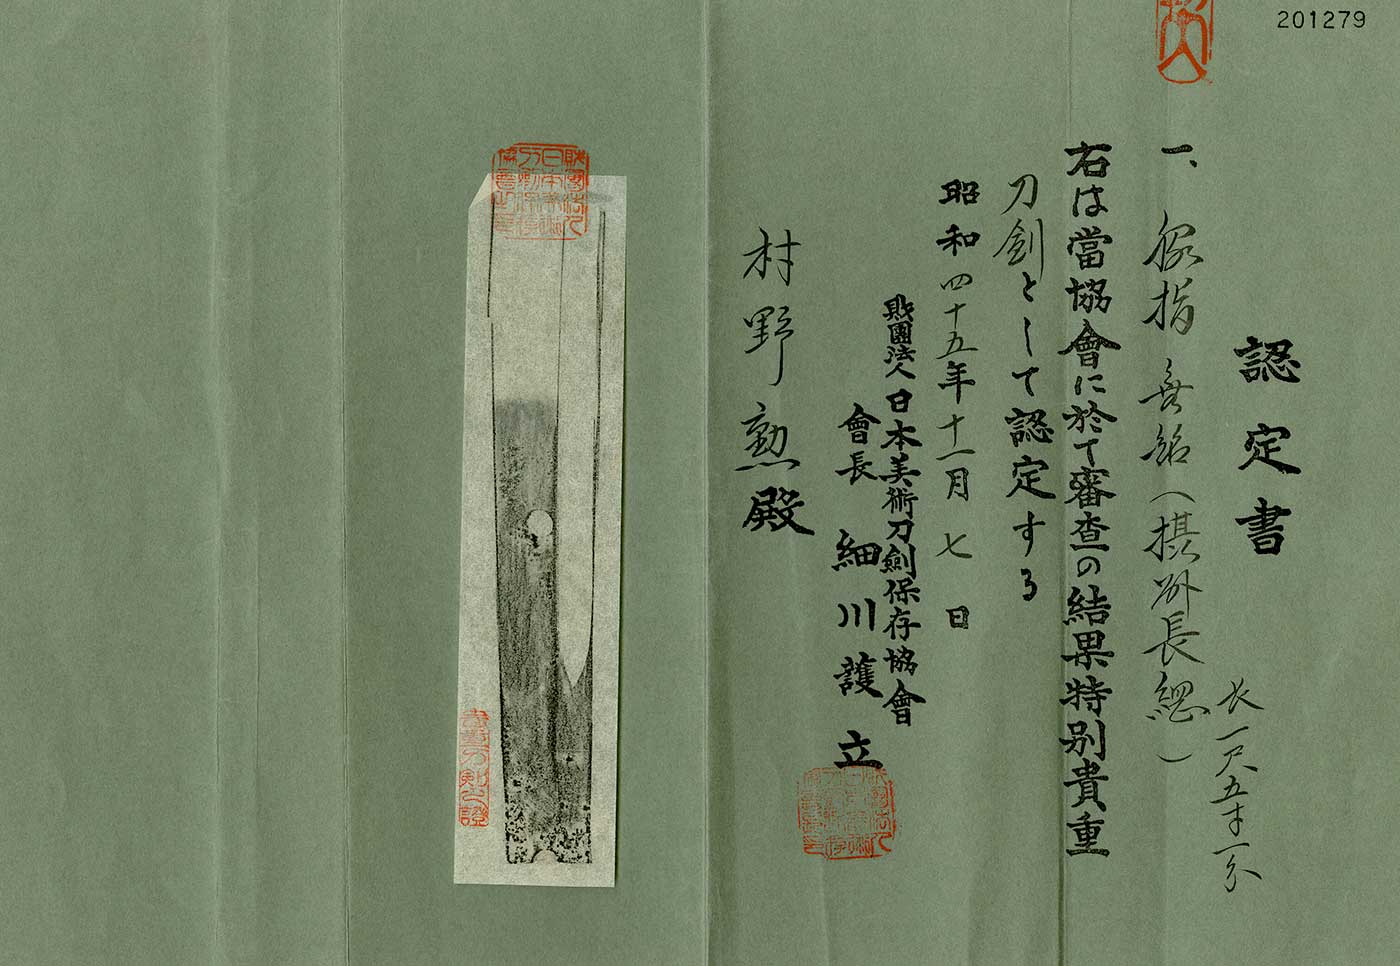 201279
認定書
一、脇指 無銘(摂州長綱)
長一尺五寸一分
右は當協會に於て審査の結果特別貴重
刀劍として認定する
昭和四十五年十一月七日
財團法人日本美術刀劍保存協會
會長 細川護立
村野勲殿